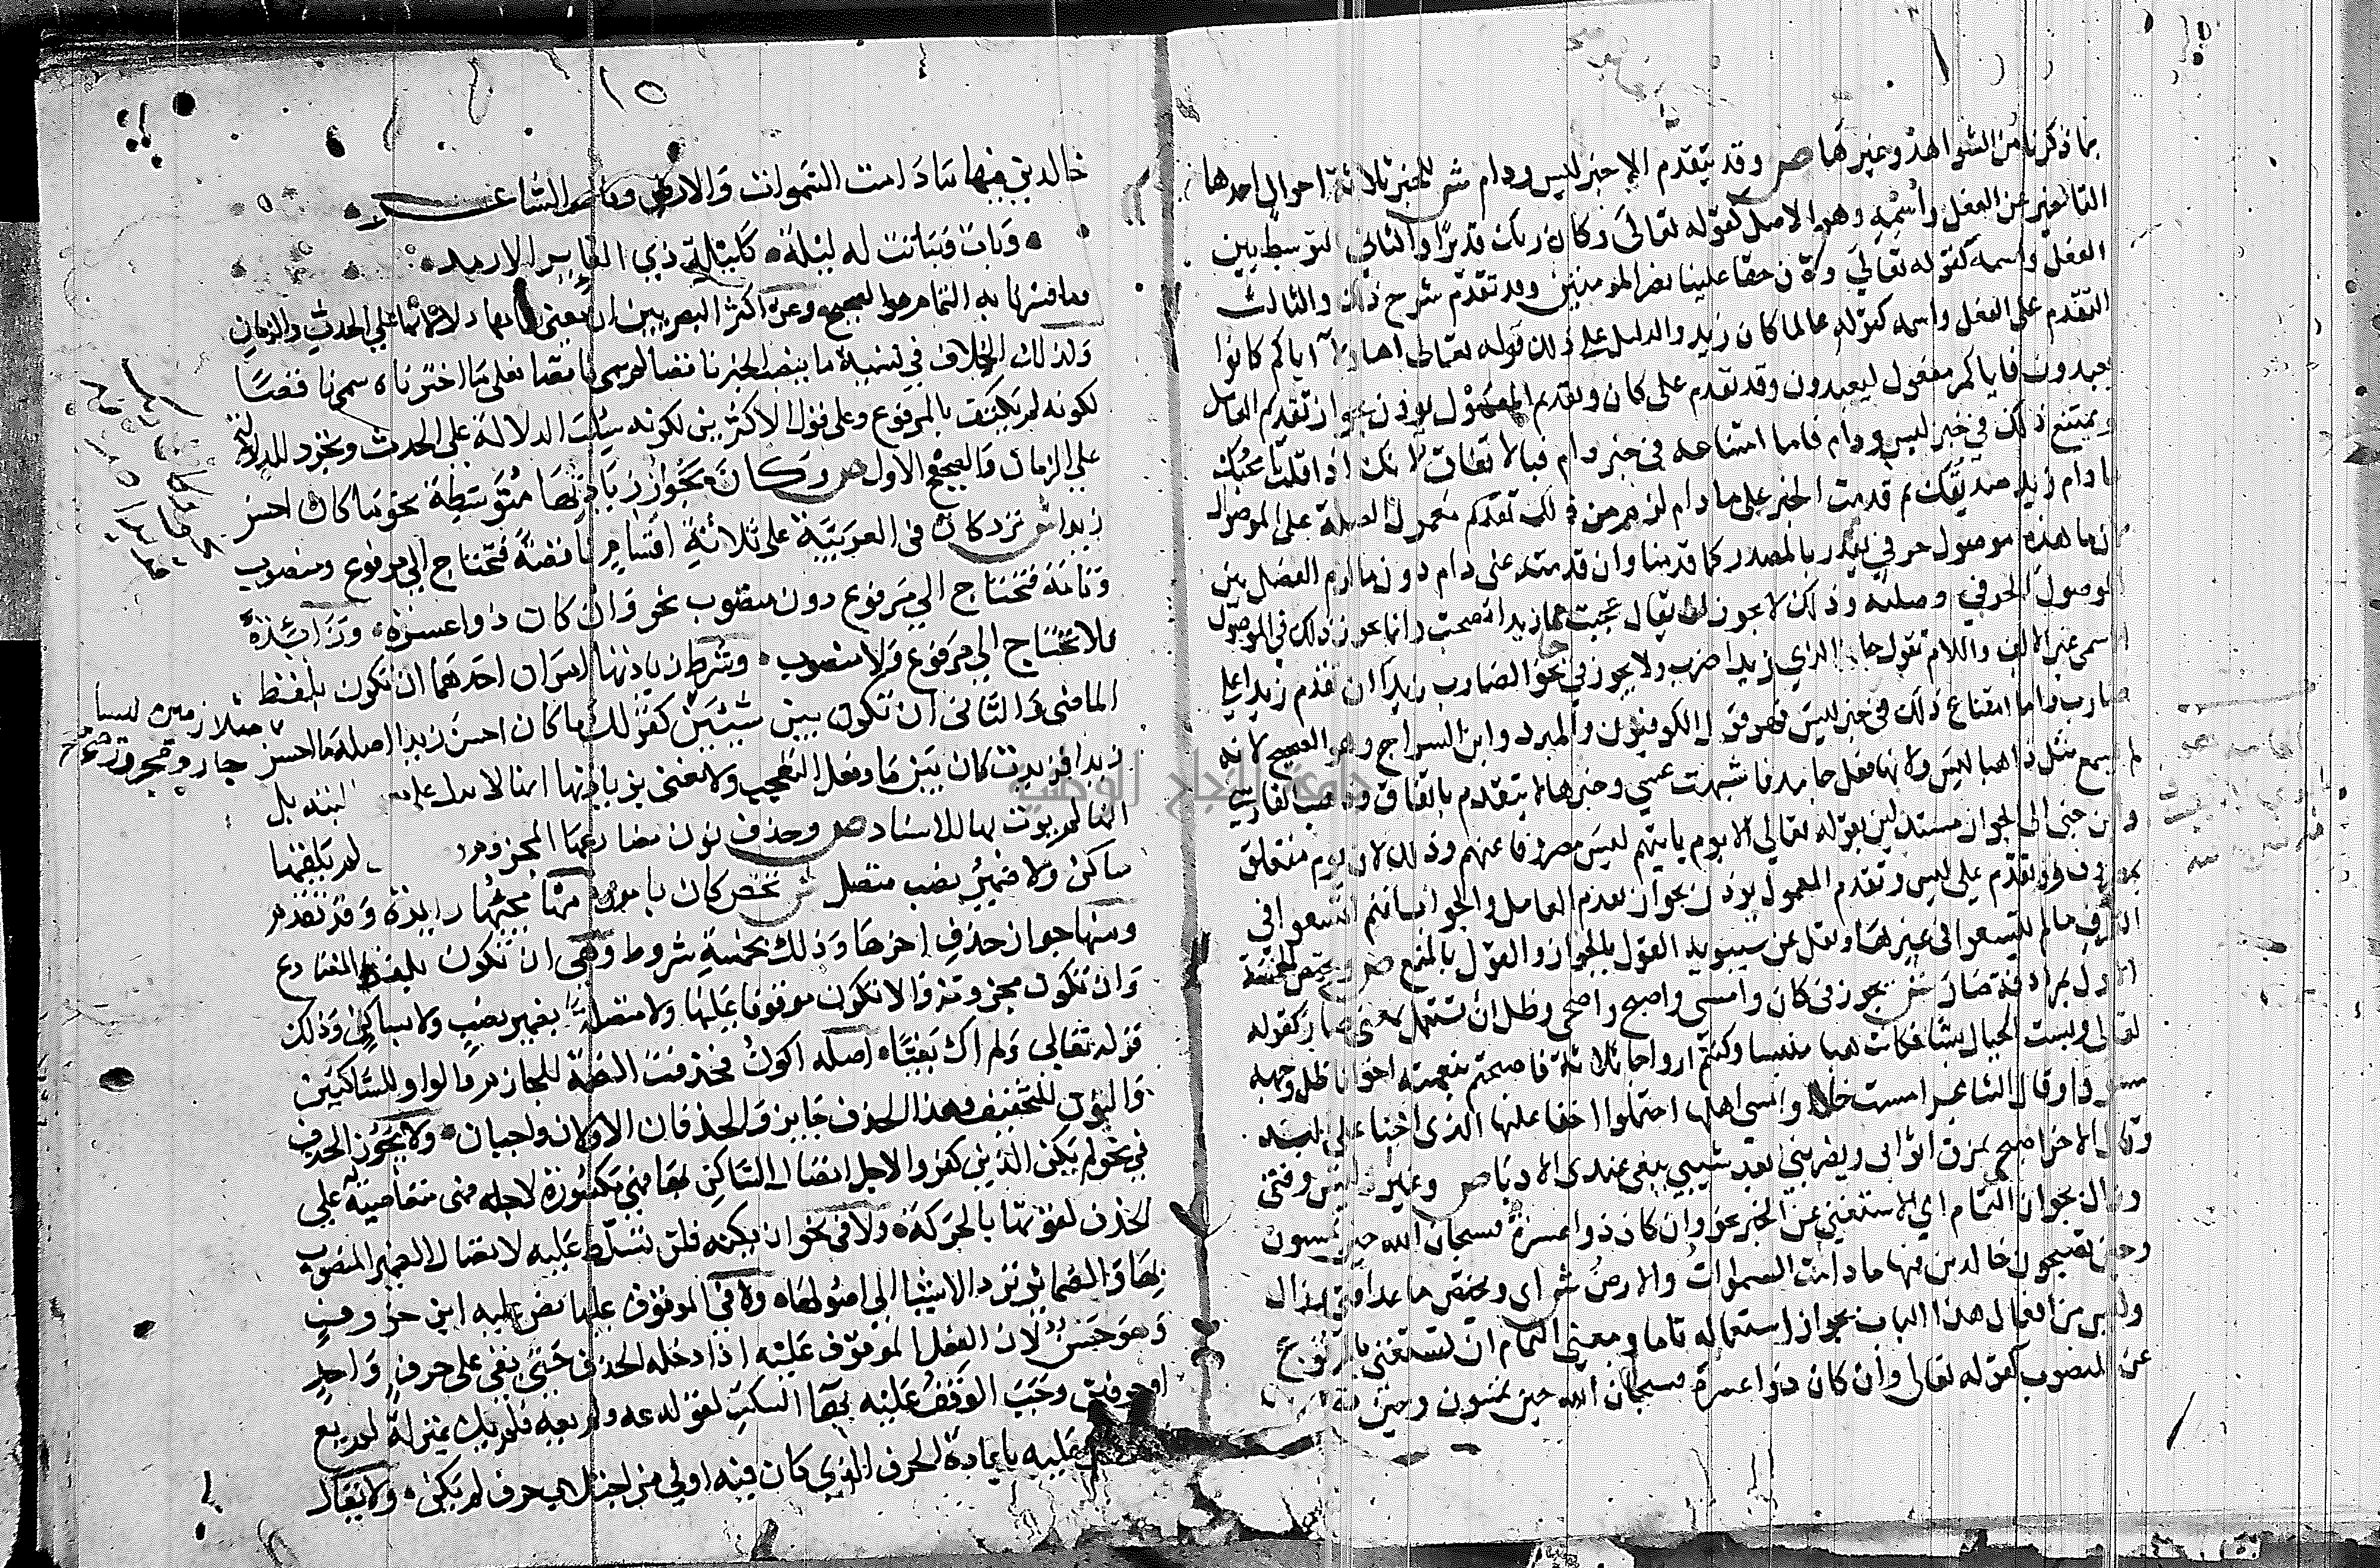 بما ذكرنا من الشواهد وغيرها ص وقد يتقدم الا خبر ليس ودام ش للخبر ثلاثة احوال احدها
التاخير عن الفعل واسمه وهو الاصل كقوله تعالى وكان ربك قديرا والثاني التوسط بين
الفعل واسمه كقوله تعالى وكان حقا علينا نصر المومنين وقد تقدم شرح ذلك والثالث
التقدم على الفعل واسمه كقولك عالما كان زيد والدليل على ذلك قوله تعالى اهاولآ اياكم كانوا
يعبدون فاياكم مفعول ليعبدون وقد تقدم على كان وتقدم المعمول يوذن بجواز تقدم العامل
ويمتنع ذلك في خبر ليس ودام فاما امتناعه في خبر دام فبالاتفاق لانك اذا قلت لا اصحبك
ما دام زيد صديقك ثم قدمت الخبر على ما دام لزم من ذلك تقدم معمول الصلة على الموصول
لان ما هذه موصول حرفي يقدر بالمصدر كما قدمنا وان قدمته على دام دون ما لزم الفصل بين
الموصول الحرفي وصلته وذلك لا يجوز لا يقال عجبت مما زيدا تصحب وانما يجوز ذلك في الموصول
الاسمى غير الالف واللام تقول جا الذي زيدا ضرب ولا يجوز في نحو الضارب زيدا ان تقدم زيدا على
ضارب واما امتناع ذلك في خبر ليس فهو قول الكوفيين والمبرد وابن السراج وهو الصحيح لانه
لم يسمع مثل ذاهبا ليس ولانها فعل جامد فاشبهت عسى وخبرها لا يتقدم باتفاق وذهب الفارسي
وابن جنى الى الجواز مستدلين بقوله تعالى الا يوم ياتيهم ليس مصروفا عنهم وذلك لان يوم متعلق
بمصروف وقد تقدم على ليس وتقدم المعمول يوذن بجواز تقدم العامل والجواب انهم اتسعوا في
الظرف ما لم يتسعوا في غيرها ونقل عن سيبويه القول بالجواز والقول بالمنع ص وتختص الخمسة
الاول بمرادفة صار ش يجوز في كان وامسى واصبح واضحى وظل ان تستعمل بمعنى صار كقوله
تعالى وبست الجبال بسا فكانت هبا منبثا وكنتم ازواجا ثلاثة فاصبحتم بنعمته اخوانا ظل وجهه
مسودا وقال الشاعر امست خلا وامسى اهلها احتملوا اخنا عليها الذي اخنا على لبد
وقال الاخر اضحى يمزق اثوابى ويضربني ابعد شيبي يبغى عندي الادبا ص وغير ليس وفتئ
وزال بجواز التمام اي الاستغنى عن الخبر نحو وان كان ذو عسرة فسبحان الله حين تمسون
وحين تصبحون خالدين فيها ما دامت السموات والارض ش اي ويختص ما عدا فتئ وزال
وليس من افعال هذا الباب بجواز استعماله تاما ومعنى التمام ان تستغنى بالمرفوع
عن المنصوب كقوله تعالى وان كان ذوا عسرة فسبحان الله حين تمسون وحين
١٥
خالدين فيها ما دامت السموات والارض وقال الشاعر
وبات وباتت له ليلة كليلة ذي العاير الارمد
وما فسرنا به التمام هو الصحيح وعن اكثر البصريين ان معنى تمامها دلالتها على الحدث والزمان
وكذلك الخلاف في تسمية ما ينصب الخبر ناقصا لم سمي ناقصا فعلى ما اخترناه سمي ناقصا
لكونه لم يكتف بالمرفوع وعلى قول الاكثرين لكونه سلب الدلالة على الحدث وتجرد للدلالة
على الزمان والصحيح الاول ص وكان تجوز زيادتها متوسطة نحو ما كان احسن
زيدا ش ترد كان في العربية على ثلاثة اقسام ناقصة فتحتاج الى مرفوع ومنصوب
وتامة فتحتاج الى مرفوع دون منصوب نحو وان كان ذوا عسرة وزائدة
فلا تحتاج الى مرفوع ولا منصوب وشرط زيادتها امران احدهما ان تكون بلفظ
الماضى والثانى ان تكون بين شيئين كقولك ما كان احسن زيدا اصله ما احسن
متلازمين ليسا
جار ومجرور
زيدا فزيدت كان بين ما وفعل التعجب ولا نعنى بزيادتها انها لا تدل على البتة بل
انها لم يوت بها للاسناد ص وحذف نون مضارعها المجزوم لم يلقها
ساكن ولا ضمير نصب متصل ش تختص كان بامور منها مجيئها زايدة وقد تقدم
ومنها جواز حذف اخرها وذلك بخمسة شروط وهي ان تكون بلفظ المضارع
وان تكون مجزومة والا تكون موقوفا عليها ولا متصلة بضمير نصب ولا بساكن وذلك
قوله تعالى ولم اك بغيا اصله اكون فحذفت الضمة للجازم والواو للساكنين
والنون للتخفيف وهذا الحذف جايز والحذفان الاولان واجبان ولا يجوز الحذف
في نحو لم يكن الذين كفروا لاجل اتصال الساكن بها فهي مكسورة لاجله فهي متعاصية على
الحذف لقوتها بالحركة ولا في نحو ان يكنه فلن تسلط عليه لاتصال الضمير المنصوب
بها والضمائر ترد الاشيا الى اصولها ولا في الموقوف عليها نص عليه ابن خروف
وهو حسن لان الفعل الموقوف عليه اذا دخله الحذف حتى بقى على حرف واحد
او حرفين وجب الوقف عليه بها السكت كقولك عه ولم يعه فلم يك بمنزلة لم يع
عليه باعادة الحرف الذي كان فيه اولى من اجتلاب حرف لم يكن ولا يقال
جامعة النجاح الوطنية